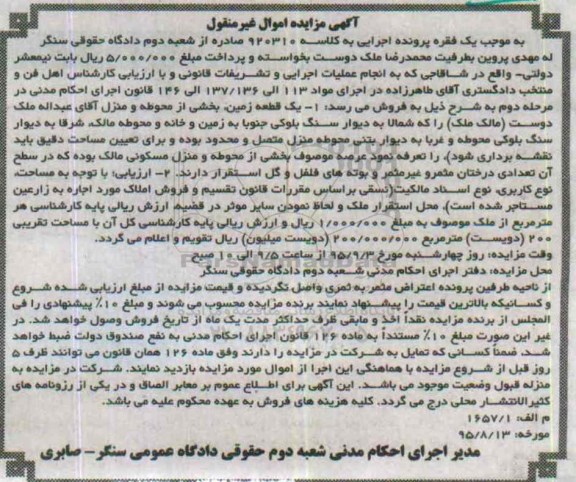 آگهی مزایده اموال غیرمنقول
به موجب یک فقره پرونده اجرایی به کلاسه ۹۲۰۳۱۰ صادره از شعبه دوم دادگاه حقوقی سنگر
له مهدی پروین بطرفیت محمدرضا ملک دوست بخواسته و پرداخت مبلغ ۵/۰۰۰/۰۰۰ ریال بابت نیمعشر
دولتی- واقع در شاقاجی که به انجام عملیات اجرایی و تشریفات قانونی و با ارزیابی کارشناس اهل فن و
منتخب دادگستری آقای طاهرزاده در اجرای مواد ۱۱۳ الی ۱۳۷/۱۳۶ الی ۱۴۶ قانون اجرای احکام مدنی در
مرحله دوم به شرح ذیل به فروش می رسد: ۱- یک قطعه زمین، بخشی از محوطه و منزل آقای عبداله ملک
دوست (مالک ملک) را که شمالا به دیوار سنگ بلوکی جنوبا به زمین و خانه و محوطه مالک، شرقا به دیوار
سنگ بلوکی محوطه و غربا به دیوار بتنی محوطه منزل متصل و محدود بوده و برای تعیین مساحت دقیق باید
نقشه برداری شود)، را تعرفه نمودند. ملک موصوف بخشی از محوطه و منزل مسکونی مالک بوده که در سطح
آن تعدادی درختان مثمرو غیرمثمر و بوته های فلفل و گل استقرار دارند. ۲- ارزیابی: با توجه به مساحت،
نوع کاربری، نوع اسناد مالکیت(نسقی براساس مقررات قانون تقسیم و فروش املاک مورد اجاره به زارعین
مستاجر شده است)، محل استقرار ملک و لحاظ نمودن سایر موثر در قضیه، ارزش ریالی پایه کارشناسی هر
مترمربع از ملک موصوف به مبلغ ۱/۰۰۰/۰۰۰ ریال و ارزش ریالی پایه کارشناسی کل آن با مساحت تقریبی
۲۰۰ (دویست) مترمربع ۲۰۰/۰۰۰/۰۰۰ (دویست میلیون) ریال تقویم و اعلام می گردد.
وقت مزایده: روز چهارشنبه مورخ ۹۵/۹/۳ از ساعت ۹/۵ الی ۱۰ صبح
محل مزایده: دفتر اجرای احکام مدنی شعبه دوم دادگاه حقوقی سنگر
از ناحیه طرفین پرونده اعتراض مثمر به ثمری واصل نگردیده و قیمت مزایده از مبلغ ارزیابی شده شروع
و کسانیکه بالاترین قیمت را پیشنهاد نمایند برنده مزایده محسوب می شوند و مبلغ ۱۰٪ پیشنهادی را فی
المجلس از برنده مزایده نقداً اخذ و مابقی ظرف حداکثر مدت یک ماه از تاریخ فروش وصول خواهد شد. در
غیر این صورت مبلغ ۱۰٪ مستنداً به ماده ۱۲۶ قانون اجرای احکام مدنی به نفع صندوق دولت ضبط خواهد
شد. ضمناً کسانی که تمایل به شرکت در مزایده را دارند وفق ماده ۱۲۶ همان قانون می توانند ظرف ۵
روز قبل از شروع مزایده با هماهنگی این اجرا از اموال مورد مزایده بازدید نمایند. شرکت در مزایده به
منزله قبول وضعیت موجود می باشد. این آگهی برای اطلاع عموم بر معابر الصاق و در یکی از رزونامه های
کثیرالانتشار محلی درج می گردد. کلیه هزینه های فروش به عهده محکوم علیه می باشد.
م الف: ۱۶۵۷/۱
مورخه: ۹۵/۸/۱۳
مدیر اجرای احکام مدنی شعبه دوم حقوقی دادگاه عمومی سنگر- صابری